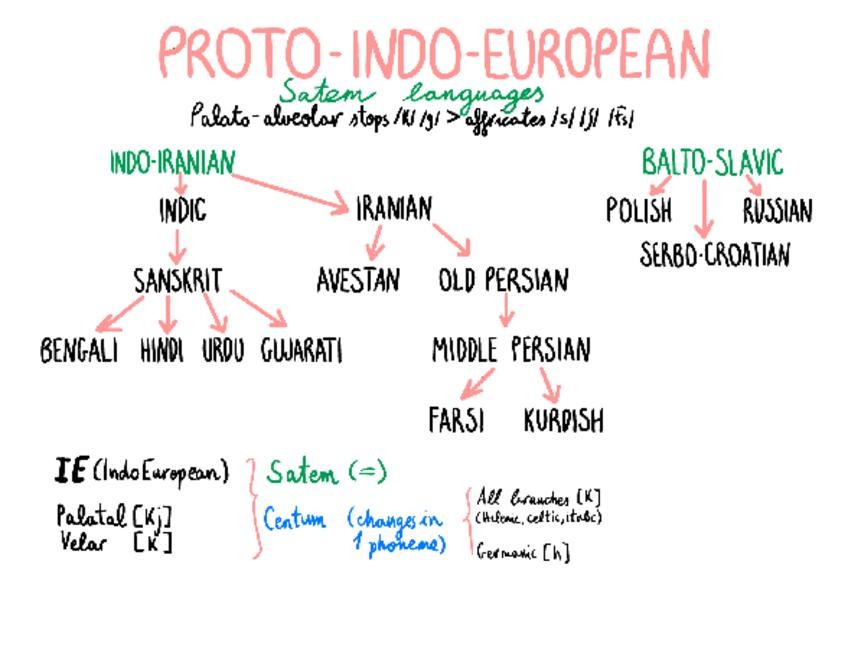 PROTO-INDO-EUROPEAN
Satem languages
Palato-alveolar stops /K/ /g/ > affricates /s/ /ʃ/ /t͡s/
INDO-IRANIAN BALTO-SLAVIC
INDIC IRANIAN POLISH RUSSIAN
SERBO-CROATIAN
SANSKRIT AVESTAN OLD PERSIAN
BENGALI HINDI URDU GUJARATI MIDDLE PERSIAN
FARSI KURDISH
IE (IndoEuropean) Satem (=)
Palatal [Kj]
Velar [K]
Centum (changes in
1 phoneme)
All branches [K]
(Helenic, celtic, italic)
Germanic [h]